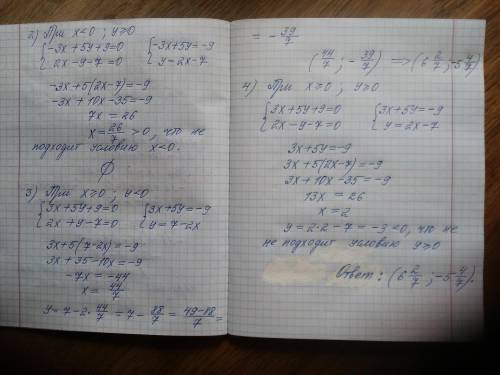 2) При x<0 ; y≥0
{-3x+5y+9=0 {-3x+5y=-9
{2x-y-7=0 {y=2x-7
-3x+5(2x-7)=-9
-3x+10x-35=-9
7x=26
x=26/7>0, что не
подходит условию x<0.
∅
3) При x≥0 ; y<0
{3x+5y+9=0 {3x+5y=-9
{2x+y-7=0 {y=7-2x
3x+5(7-2x)=-9
3x+35-10x=-9
-7x=-44
x=44/7
y=7-2·44/7=7-88/7=49-88/7=
=-39/7
(44/7;-39/7) ⟹(6 2/7;-5 4/7)
4) При x≥0 ; y≥0
{3x+5y+9=0 {3x+5y=-9
{2x-y-7=0 {y=2x-7
3x+5y=-9
3x+5(2x-7)=-9
3x+10x-35=-9
13x=26
x=2
y=2·2-7=-3<0, что не
не подходит условию y≥0
Ответ: (6 2/7;-5 4/7).